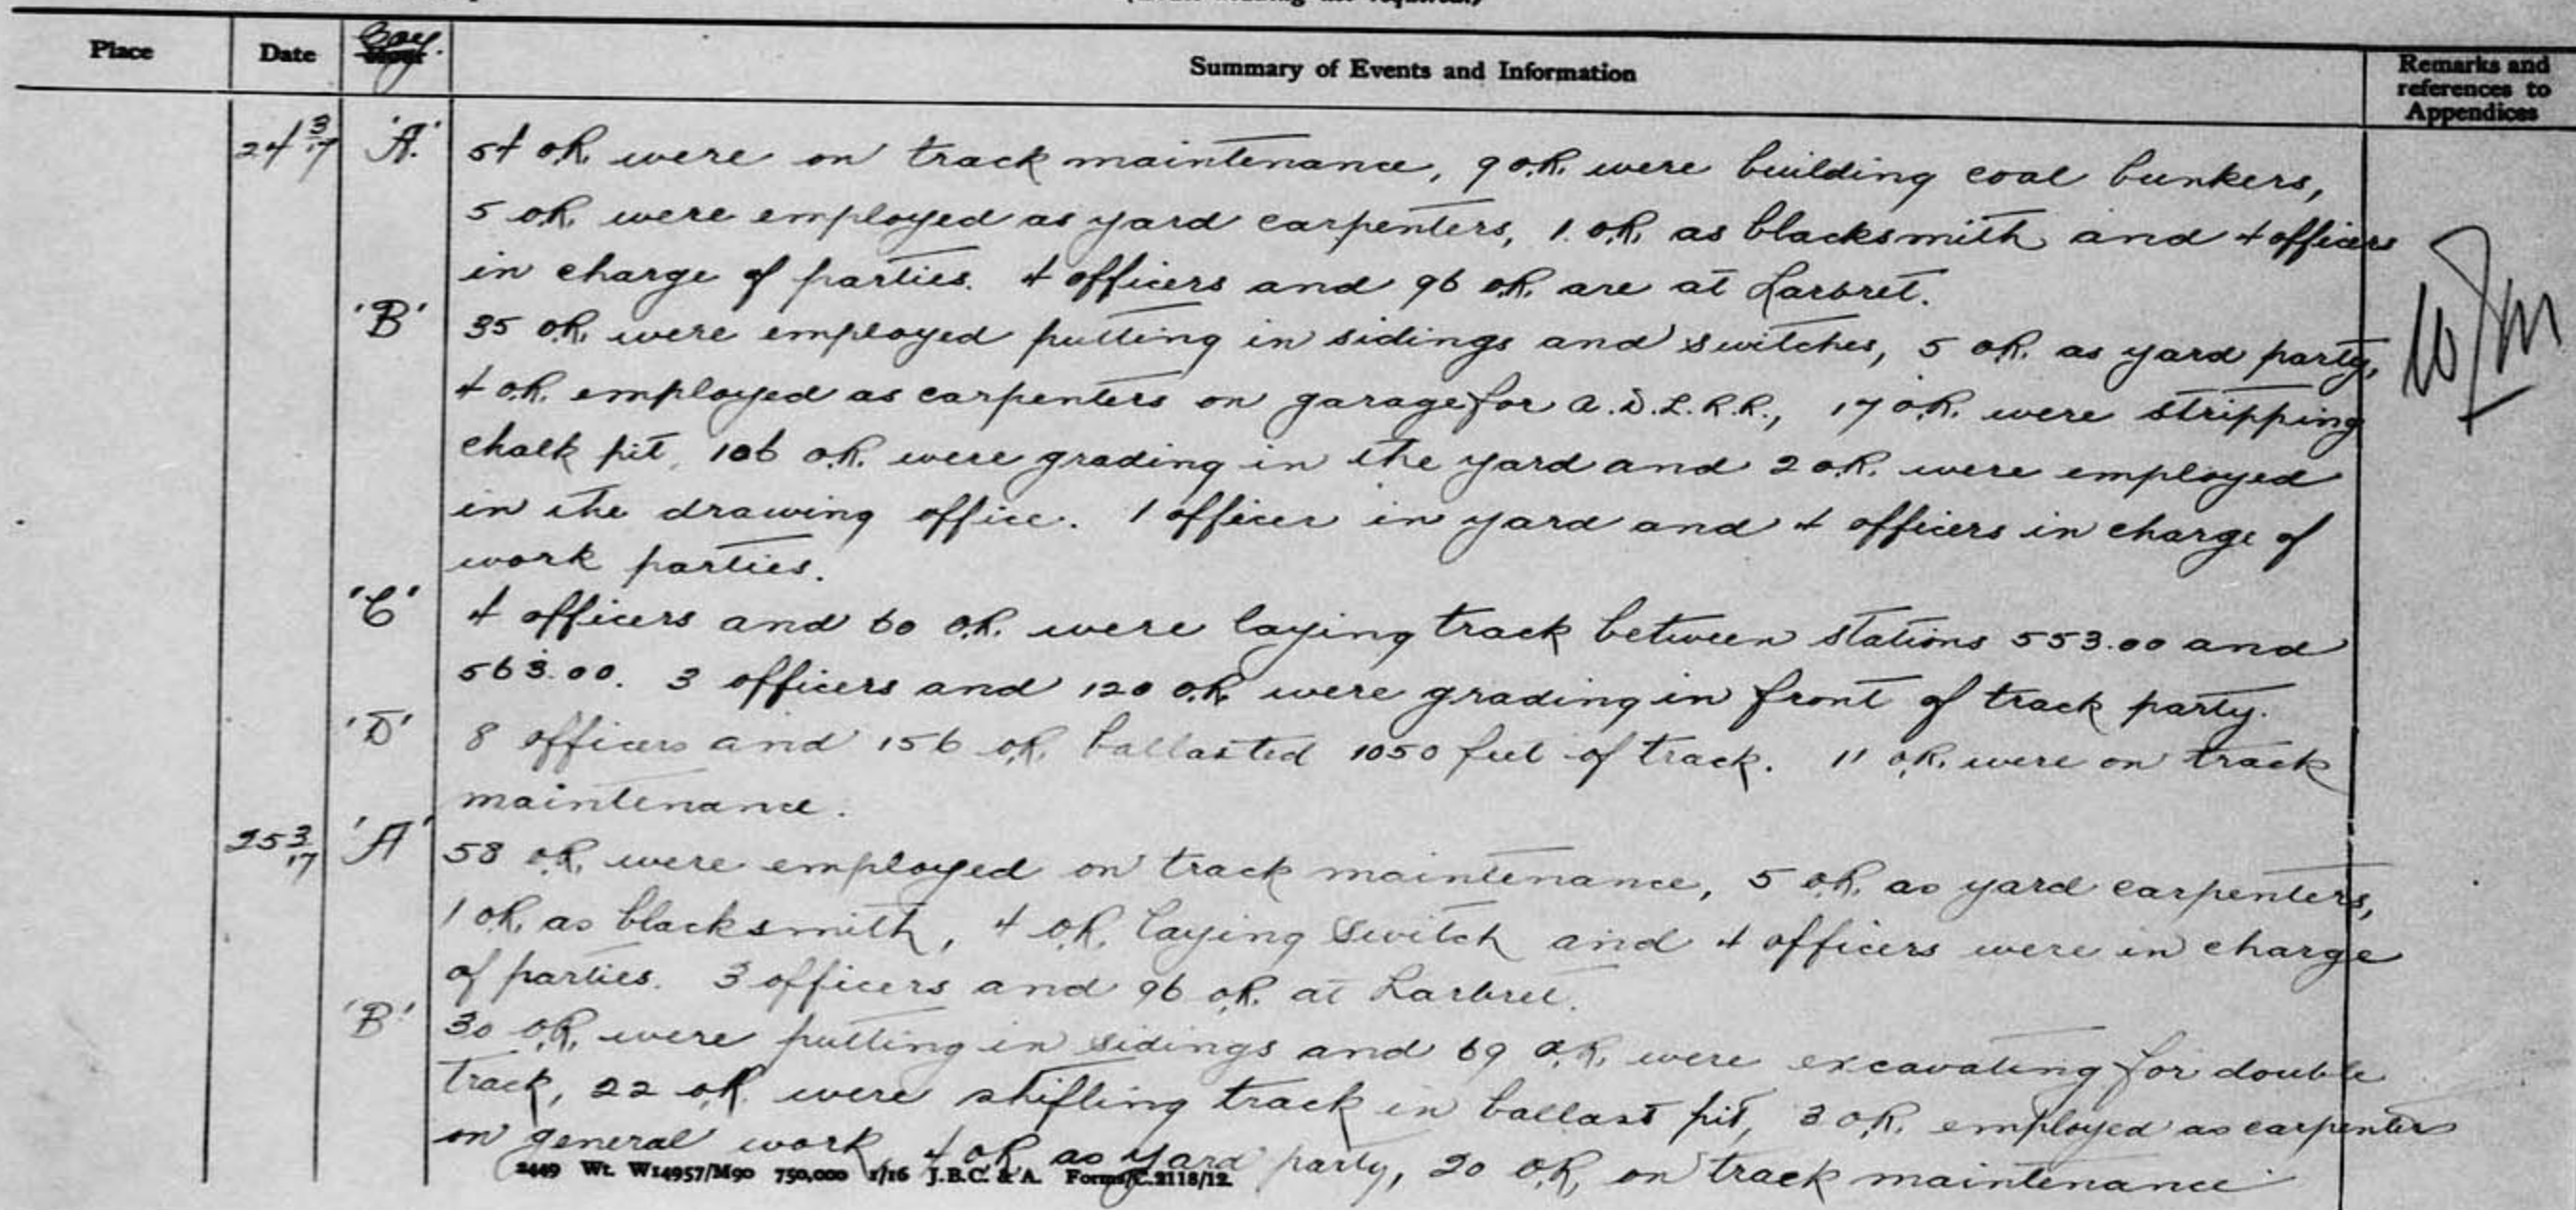 Place Date Coy. Hour Summary of Events and Information Remarks and references to Appendices
24 3/17 'A' 54 O.R. were on track maintenance, 9 O.R. were building coal bunkers,
5 O.R. were employed as yard carpenters, 1 O.R. as blacksmith and 4 officers
in charge of parties. 4 officers and 96 O.R. are at Larbret.
'B' 35 O.R. were employed putting in sidings and switches, 5 O.R. as yard party,
4 O.R. employed as carpenters on garage for A.D.L.R.R., 17 O.R. were stripping
chalk pit, 106 O.R. were grading in the yard and 2 O.R. were employed
in the drawing office. 1 officer in yard and 4 officers in charge of
work parties.
'C' 4 officers and 60 O.R. were laying track between stations 553.00 and
563.00. 3 officers and 120 O.R. were grading in front of track party.
'D' 8 officers and 156 O.R. ballasted 1050 feet of track. 11 O.R. were on track
maintenance.
25 3/17 'A' 58 O.R. were employed on track maintenance, 5 O.R. as yard carpenters,
1 O.R. as blacksmith, 4 O.R. laying switch and 4 officers were in charge
of parties. 3 officers and 96 O.R. at Larbret.
'B' 30 O.R. were putting in sidings and 69 O.R. were excavating for double
track, 22 O.R. were shifting track in ballast pit, 3 O.R. employed as carpenters
on general work, 4 O.R. as yard party, 20 O.R. on track maintenance
2449 Wt. W14957/M90 750,000 1/16 J.B.C. & A. Forms/C.2118/12.